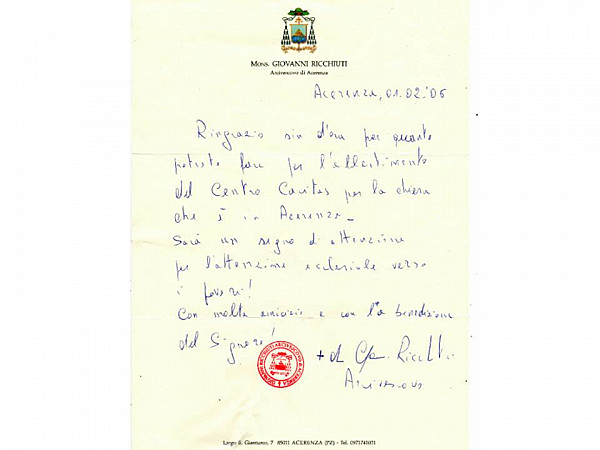 MONS. GIOVANNI RICCHIUTI
Arcivescovo di Acerenza
Acerenza, 01.02.'06
Ringrazio sin d'ora per quanto
potrete fare per l'allestimento
del Centro Caritas per la chiesa
che è in Acerenza_
Sarà un segno di attenzione
per l'attenzione ecclesiale verso
i poveri!
Con molta amicizia e con la benedizione
del Signore!
+ Ricchiuti
Arcivescovo
Largo S. Gianturco, 7 85011 ACERENZA (PZ) - Tel. 0971741071